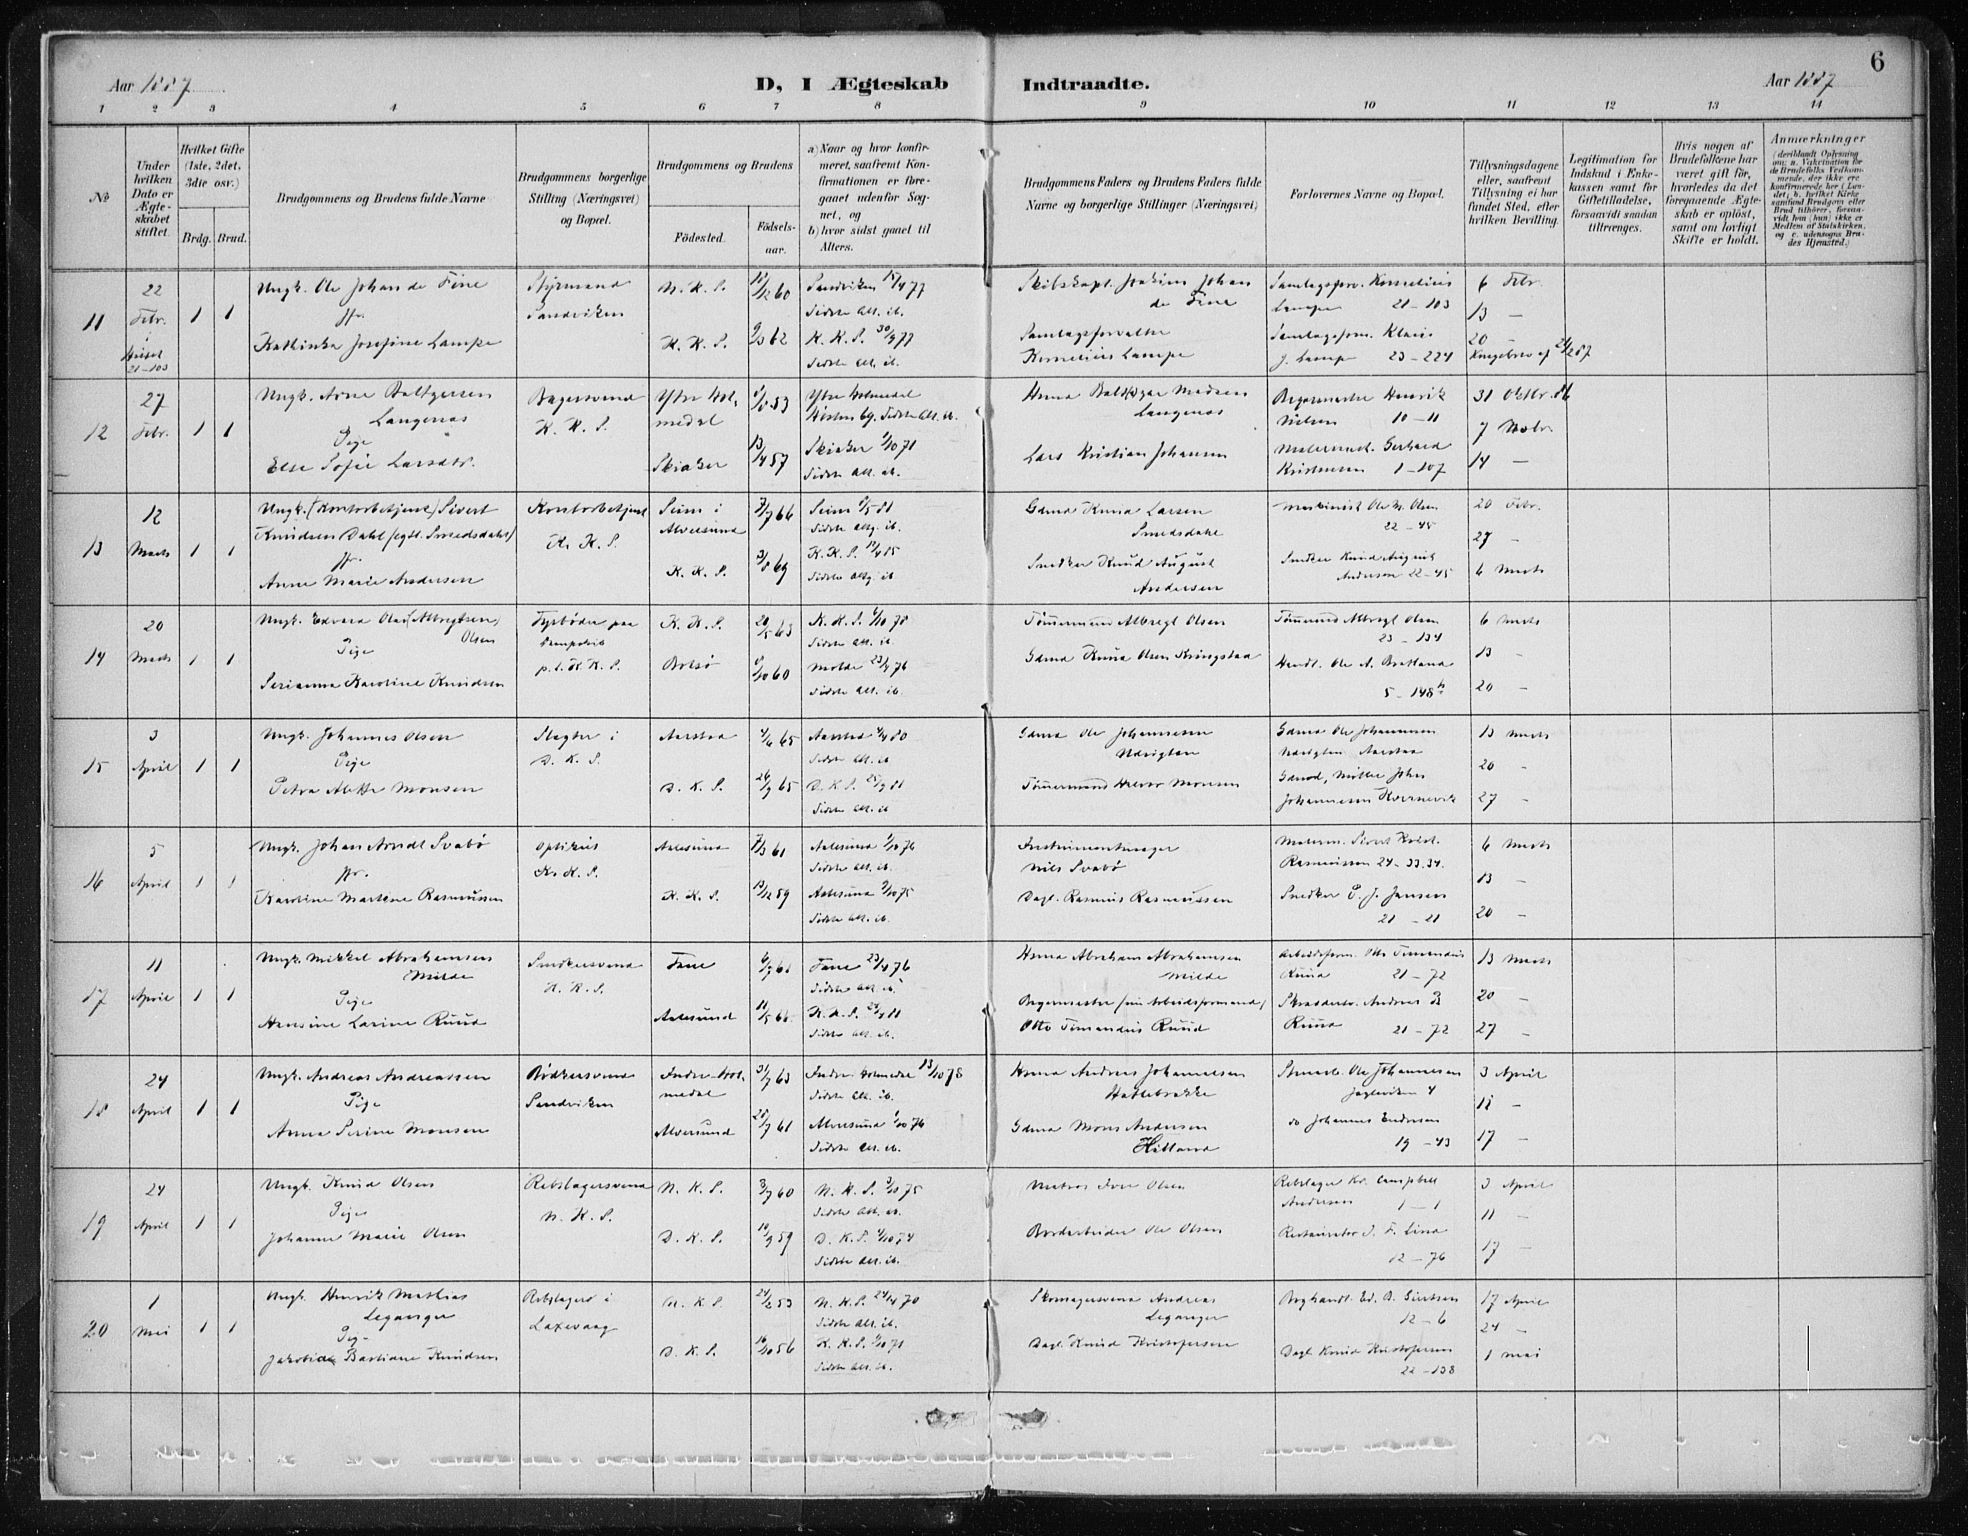 Aar 1887
D, I Ægteskab
Indtraadte.
Aar 1887
6
1 2 3 4 5 6 7 8 9 10 11 12 13 14
№
Under hvilken Dato er Ægteskabet stiftet.
Hvilket Gifte (1ste, 2det, 3die osv.)
Brdg. Brud.
Brudgommens og Brudens fulde Navne
Brudgommens borgerlige Stilling (Næringsvei) og Bopæl.
Brudgommens og Brudens
Födested.
Födselsaar.
a) Naar og hvor konfirmeret, saafremt Konfirmationen er foregaaet udenfor Sognet, og
b) hvor sidst gaaet til Alters.
Brudgommens Faders og Brudens Faders fulde Navne og borgerlige Stillinger (Næringsvei)
Forlovernes Navne og Bopæl.
Tillysningsdagene eller, saafremt Tillysning ei har fundet Sted, efter hvilken Bevilling.
Legitimation for Indskud i Enkekassen samt for Giftetilladelse, forsaavidt saadan tiltrænges.
Hvis nogen af Brudefolkene har været gift för, hvorledes da det foregaaende Ægteskab er oplöst, samt om lovligt Skifte er holdt.
Anmærkninger
(deriblandt Oplysning om: a. Vakcination for de Brudefolks Vedkommende, der ikke ere konfirmerede her i Landet; b. hvilket Kirkesamfund Brudgom eller Brud tilhörer, forsaavidt han (hun) ikke er Medlem af Statskirken, og c. udensogns Brudes Hjemsted.)
11
22 Febr. i Huset 21-103
1 1
Ungk. Ole Johan de Fine
Jfr.
Kathinka Josefine Lampe
Styrmand
Sandviken
N. K. S. 12/12 60
K. K. S. 9/3 62
Sandviken 15/4 77
Sidste Alt. ib.
K. K. S. 30/9 77
Sidste Alt. ib.
Skibskapt. Joakim Johan de Fine
Samlagsforvalter
Kornelius Lampe
Samlagsforv. Kornelius Lampe 21-103
Samlagsform. Klaus J. Lampe 23-224
6 Febr.
13 —
20 —
Kongebrev af 21/2 87
12
27 Febr.
1 1
Ungk. Arne Baltzersen Langenæs
Pige
Else Sofie Larsdtr.
Bagersvend
K. K. S.
Ytre Holmedal 53
Skiaker 13/4 57
Ytre Holmedal
Hösten 69. Sidste Alt. ib.
Skiaker /10 71
Sidste Alt. ib.
Husm. Madsen Langenæs
Lars Kristian Johansen
Bagermester Henrik Nielsen 10-11
Malersvend. Gerhard Kristensen 1-107
31 Oktbr. 86
7 Novbr.
14 —
13
12 Marts
1 1
Ungk. (Kontorbetjent) Sivert Knudsen Dahl (egtl. Smedsdahl)
Jfr.
Anne Marie Andersen
Kontorbetjent
K. K. S.
Seim i Alversund 7/7 66
K. K. S. 3/8 69
Seim 81
Sidste Altg. ib.
K. K. S. 12/4 85
Sidste Altg. ib.
Gdmd Knud Larsen Smedsdahl
Snedker Knud August Andersen
Maskinist Ole M. Olsen 22-45
Snedker Knud August Andersen 22-45
20 Febr.
27 —
6 Marts
14
20 Marts
1 1
Ungk. Edvard Olai (Albregtsen) Olsen
Pige
Serianna Karoline Knudsen
Fyrböder paa Dampskib
p. t. K. K. S.
K. K. S. 20/5 63
Bolsö 60
K. K. S. /10 78
Sidste Alt. ib.
Molde 23/7 76
Sidste Alt. ib.
Tömmermand Albregt Olsen
Gdmd Knud Olsen Kringstad
Tömmermd Albregt Olsen 23-134
Handl. Ole A. Bratland 5-148 b
6 Marts
13 —
20 —
15
3 April
1 1
Ungk. Johannes Olsen
Pige
Petra Alette Monsen
Slagter i
D. K. S.
Aarstad 4/6 65
D. K. S. 26/9 65
Aarstad 4/4 80
Sidste Alt. ib.
D. K. S. 25/9 81
Sidste Alt. ib.
Gdmd Ole Johannesen
Tömmermand Halvor Monsen
Gdmd Ole Johannesen Aarstad
Gdmd, Möller John Johannesen Kvernevik
13 Marts
20 —
27 —
16
5 April
1 1
Ungk. Johan Arndt Svabö
Jfr.
Karoline Martine Rasmussen
Optikus
K. K. S.
Aalesund 7/3 61
K. K. S. 13/12 59
Aalesund 1/10 76
Sidste Alt. ib.
Aalesund 3/10 75
Sidste Alt. ib.
Instrumentmager
Nils Svabö
Dagl. Rasmus Rasmussen
Malerm. Sivert Krist. Rasmussen 24-33.34.
Snedker P. J. Jansen 21-21
6 Marts
13 —
20 —
17
11 April
1 1
Ungk. Mikkel Abrahamsen Milde
Pige
Hansine Larine Ruud
Snedkersvend
K. K. S.
Fane 6/7 61
Aalesund 11/5 66
Fane 23/4 76
Sidste Alt. ib.
K. K. S. 24/4 81
Sidste Alt. ib.
Husmd Abraham Abrahamsen Milde
Bagermester (nu Arbeidsformand)
Otto Timandus Ruud
Arbeidsform. Otto Timandus Ruud 21-72
Skræddersv. Andreas B Ruud 21-72
13 Marts
20 —
27 —
18
24 April
1 1
Ungk. Andreas Andreassen
Pige
Anna Serine Monsen
Bödkersvend
Sandviken
Indre Holmedal 31/7 63
Alversund 28/7 61
Indre Holmedal 13/10 78
Sidste Alt. ib.
Alversund 1/10 76
Sidste Alt. ib.
Husmd Andreas Johannesen Hatlebrække
Gdmd Mons Andersen Hitland
Ole Johannesen Jægteviken 4
do Johannes Endresen 19-43
3 April
11 —
17 —
19
24 April
1 1
Ungk. Knud Olsen
Pige
Johanne Marie Olsen
Rebslagersvend
N. K. S.
N. K. S. 3/7 60
D. K. S. 10/9 59
N. K. S. 3/10 75
Sidste Alt. ib.
D. K. S. 4/10 74
Sidste Alt. ib.
Matros Iver Olsen
Bordarbeider Ole Olsen
Rebslager Kr. Campbell Andersen 1-1
Restauratör J. F. Lind 12-76
3 April
11 —
17 —
20
1 Mai
1 1
Ungk. Henrik Mathias Leganger
Pige
Jakobine Bastiane Knudsen
Rebslager i
Laxevaag
N. K. S. 24/2 53
D. K. S. 16/10 56
N. K. S. 24/4 70
Sidste Alt. ib.
K. K. S. /10 71
Sidste Alt. ib.
Skomagersvend Andreas Leganger
Dagl. Knud Kristofersen
Ed. B. Giertsen 12-6
Dagl. Knud Kristofersen 22-138
17 April
24 —
1 Mai